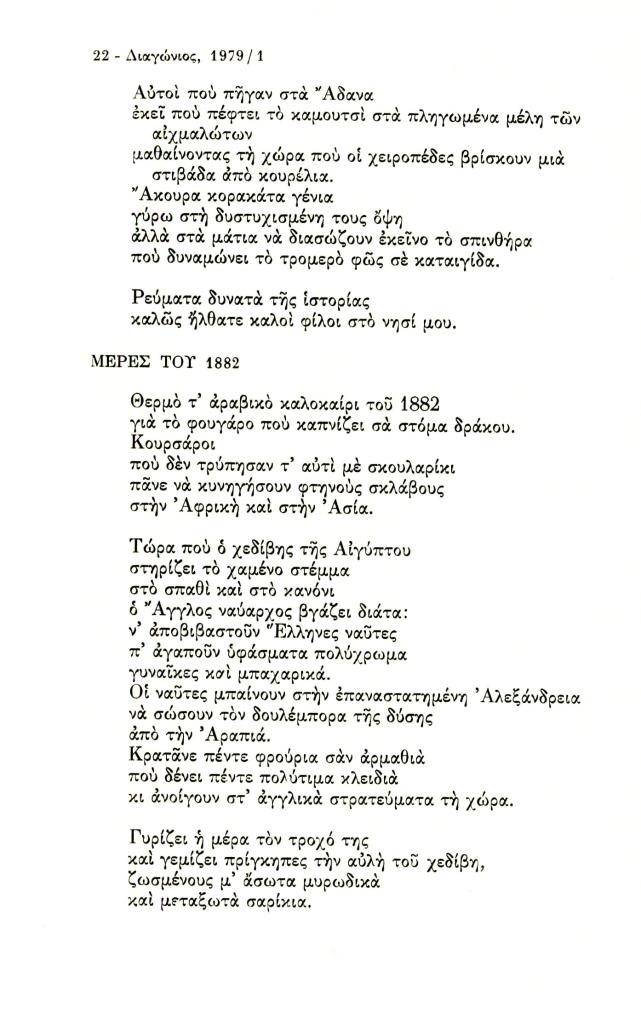 22 - Διαγώνιος, 1979 / 1
Αὐτοὶ ποὺ πῆγαν στὰ Ἄδανα
ἐκεῖ ποὺ πέφτει τὸ καμουτσὶ στὰ πληγωμένα μέλη τῶν
αἰχμαλώτων
μαθαίνοντας τὴ χώρα ποὺ οἱ χειροπέδες βρίσκουν μιὰ
στιβάδα ἀπὸ κουρέλια.
Ἄκουρα κορακάτα γένια
γύρω στὴ δυστυχισμένη τους ὄψη
ἀλλὰ στὰ μάτια νὰ διασώζουν ἐκεῖνο τὸ σπινθήρα
ποὺ δυναμώνει τὸ τρομερὸ φῶς σὲ καταιγίδα.
Ρεύματα δυνατὰ τῆς ἱστορίας
καλῶς ἤλθατε καλοὶ φίλοι στὸ νησί μου.
ΜΕΡΕΣ ΤΟΥ 1882
Θερμὸ τ' ἀραβικὸ καλοκαίρι τοῦ 1882
γιὰ τὸ φουγάρο ποὺ καπνίζει σὰ στόμα δράκου.
Κουρσάροι
ποὺ δὲν τρύπησαν τ' αὐτὶ μὲ σκουλαρίκι
πᾶνε νὰ κυνηγήσουν φτηνοὺς σκλάβους
στὴν Ἀφρικὴ καὶ στὴν Ἀσία.
Τώρα ποὺ ὁ χεδίβης τῆς Αἰγύπτου
στηρίζει τὸ χαμένο στέμμα
στὸ σπαθὶ καὶ στὸ κανόνι
ὁ Ἄγγλος ναύαρχος βγάζει διάτα:
ν' ἀποβιβαστοῦν Ἕλληνες ναῦτες
π' ἀγαποῦν ὑφάσματα πολύχρωμα
γυναῖκες καὶ μπαχαρικά.
Οἱ ναῦτες μπαίνουν στὴν ἐπαναστατημένη Ἀλεξάνδρεια
νὰ σώσουν τὸν δουλέμπορα τῆς δύσης
ἀπὸ τὴν Ἀραπιά.
Κρατᾶνε πέντε φρούρια σὰν ἁρμαθιὰ
ποὺ δένει πέντε πολύτιμα κλειδιὰ
κι ἀνοίγουν στ' ἀγγλικὰ στρατεύματα τὴ χώρα.
Γυρίζει ἡ μέρα τὸν τροχό της
καὶ γεμίζει πρίγκηπες τὴν αὐλὴ τοῦ χεδίβη,
ζωσμένους μ' ἄσωτα μυρωδικὰ
καὶ μεταξωτὰ σαρίκια.